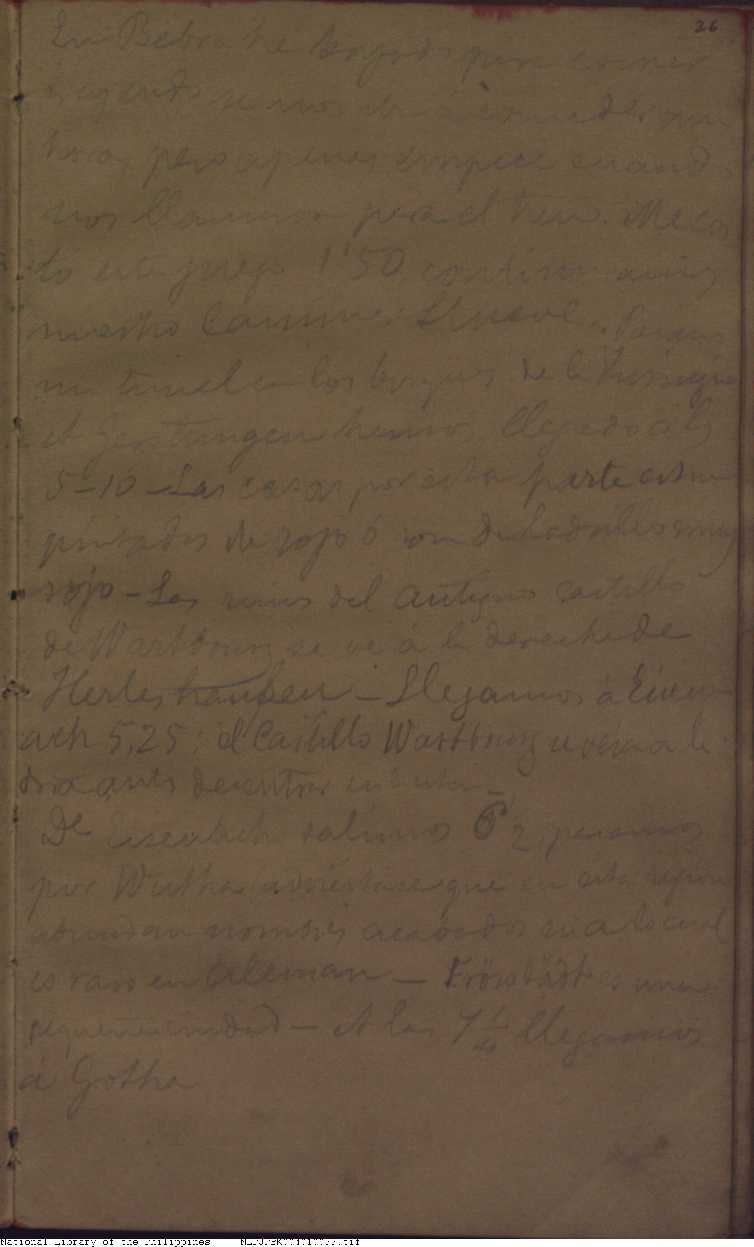 26
En Bebra he bajado para comer
creyendo se nos iba á conceder una
hora, pero apenas empecé cuando
nos llamaron para el tren. Me cos
tó este juego 1'50. continuamos
nuestro camino. Llueve. Pasamos
un tunel en los bosques de la
A Gerstungen hemos llegado á las
5-10 - Las casas por esta parte estan
pintadas de rojo ó son de ladrillos muy
rojo - Las ruinas del antiguo castillo
de Wartburg se ve á la derecha de
Herleshausen - Llegamos á Eisen
ach 5,25; el Castillo Wartburg se vé á la
dra antes de entrar en
De Eisenach salimos 6 1/2, pasamos
por Wutha (adviértase que en esta region
abundan nombres acabados en a lo cual
es raro en Aleman - Fröttstädt es una
pequeña ciudad - A las 7 1/4 llegamos
á Gotha
National Library of the Philippines